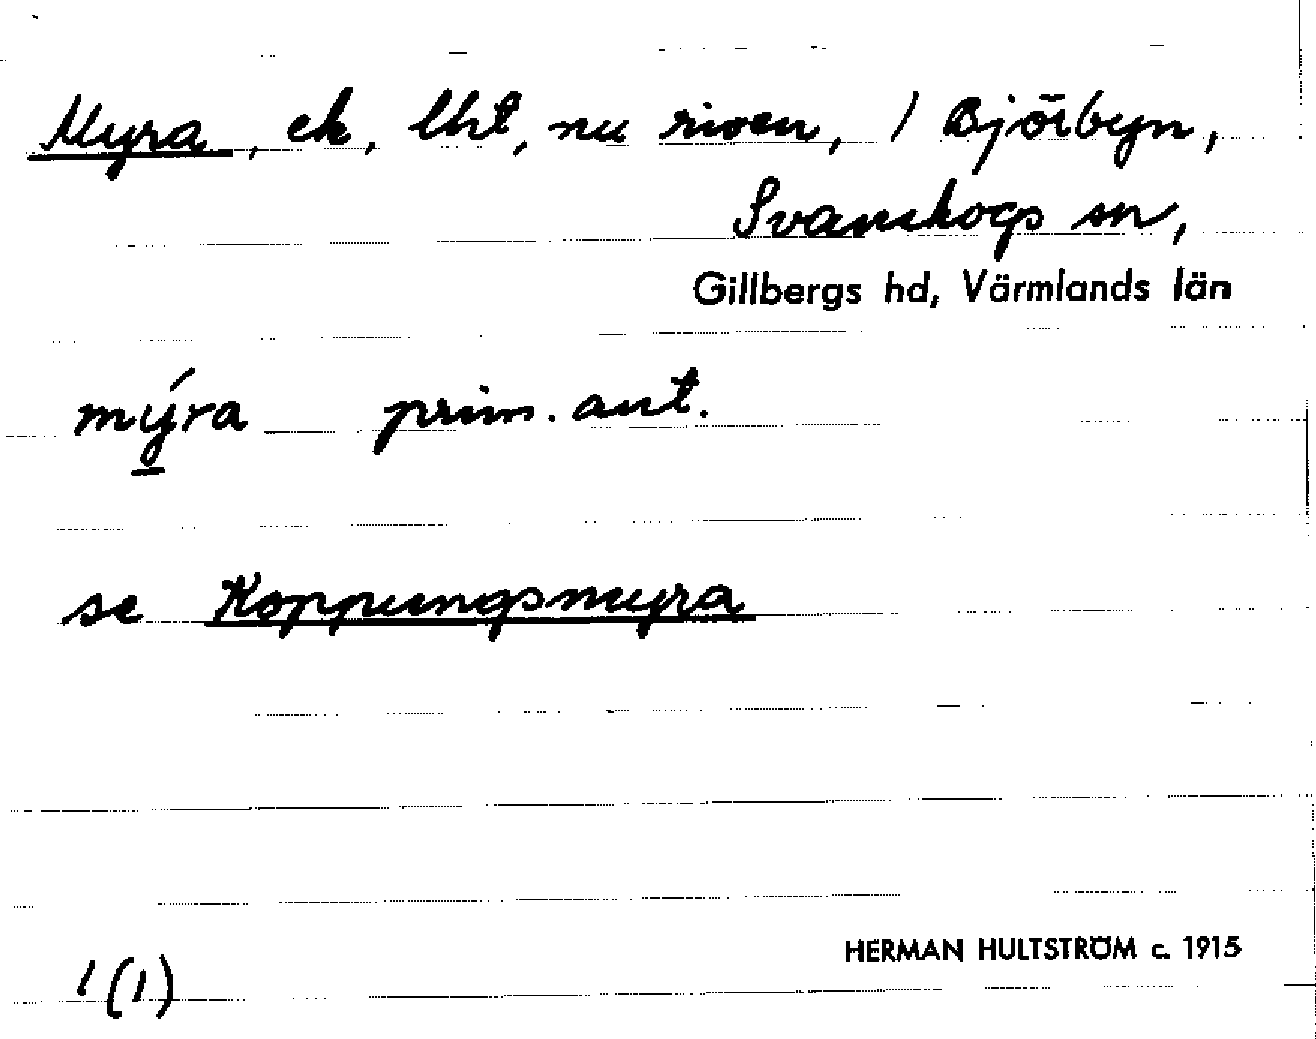 Myra, ek, lht, nu riven, / Björbyn,
Svanskogs sn,
Gillbergs hd, Värmlands län
mýra prim. ant.
se Koppungsmyra
HERMAN HULTSTRÖM c. 1915
1 (1)